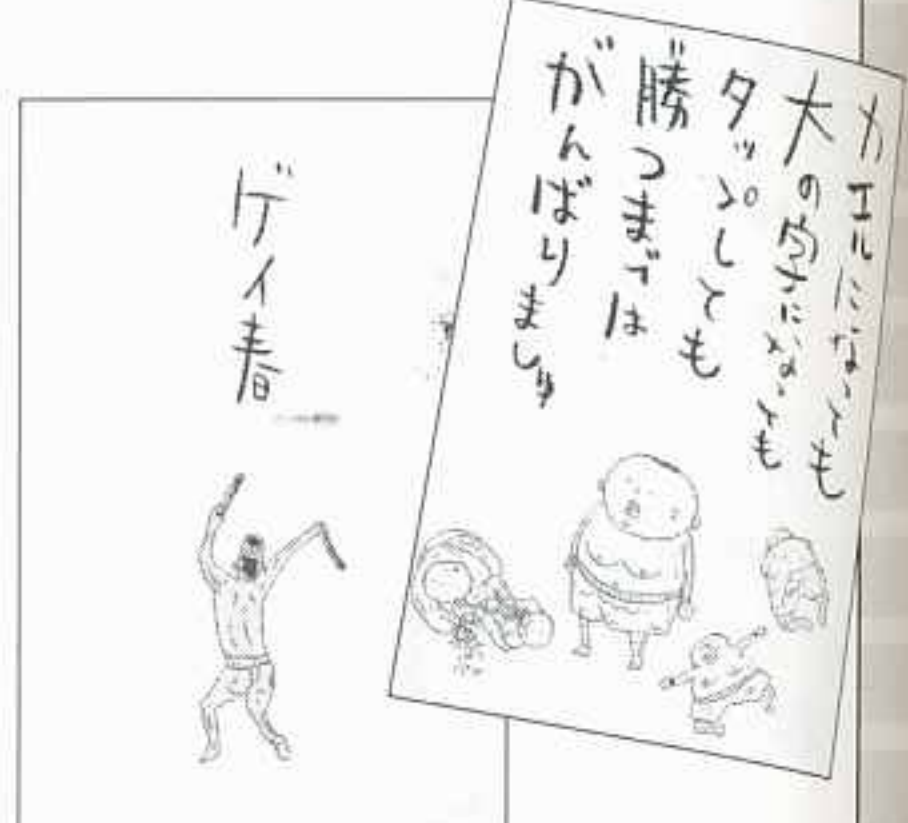 カエルになっても
大の字になっても
タップしても
勝つまでは
がんばりましゅ
ゲイ春